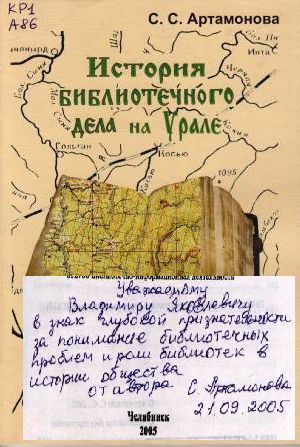 КР1
А86
С. С. Артамонова
История
библиотечного
дела на Урале
Уважаемому
Владимиру Яковлевичу
в знак глубокой признательности
за понимание библиотечных
проблем и роли библиотек в
истории общества
от автора С. Артамонова
21.09.2005
Челябинск
2005